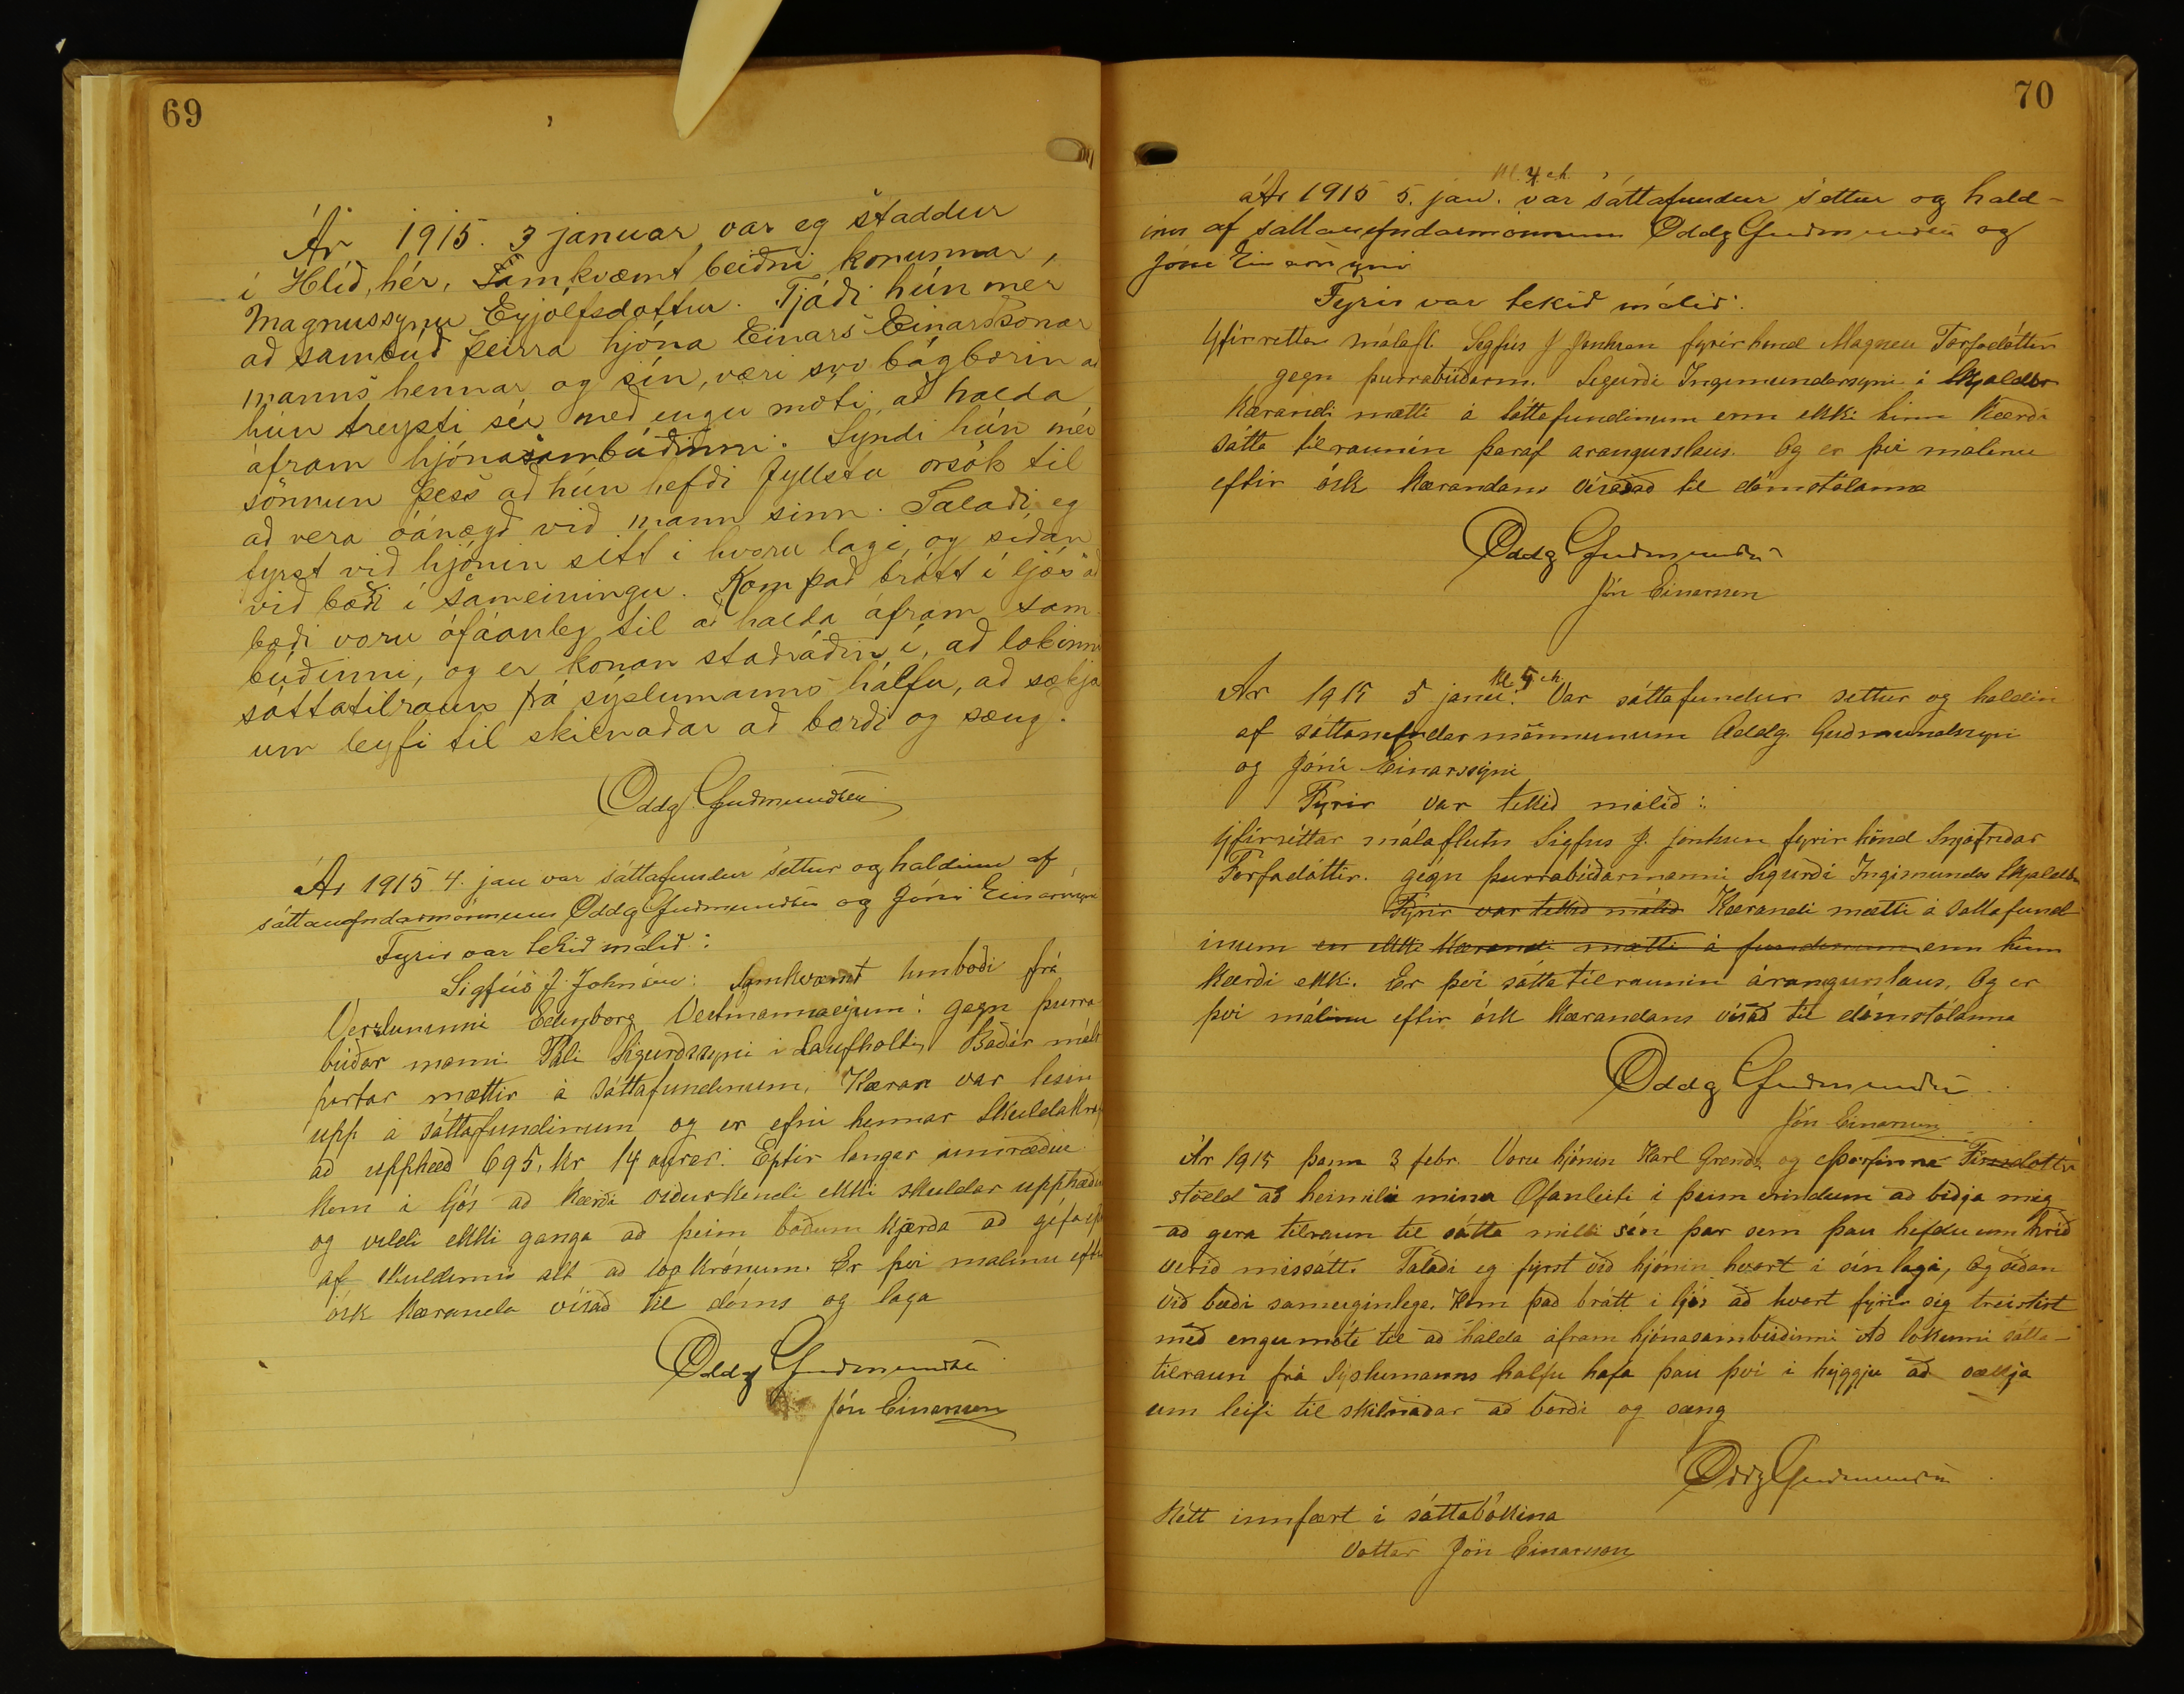 69
Ár 1915. 3 januar var eg staddur
í Hlíð, hér, Samkvæmt beiðni konunnar,
Magnussynu Eyjólfsdottur. Tjáði hún mér
að sambúð þeirra hjóna Einars Einarssonar
manns hennar og sín, væri svo bágborin að
hún treysti sér með engu móti, að halda
áfram hjónasambúðinni. Syndi hún mér
sönnun þess að hún hefði fyllstu orsök til
að vera óánægð við mann sinn. Talaði eg
fyrst við hjónin sitt i hvoru lagi, og síðan
við bæði í sameiningu. Kom það brátt í ljós að
bæði voru ófáanleg til að halda áfram sam-
búðinni, og er konan staðráðin í, að lokinni
sáttatilraun frá sýslumanns hálfu, að sækja
um leyfi til skilnaðar að borði og sæng.
Oddg. Guðmundsen
Ár 1915 4. jan var sáttafundur settur og haldinn af
sáttanefndarmönnum Oddg Guðmundsen og Jóni Einarssyni
Fyrir var tekið málið:
Sigfús J. Johnsen: Samkvæmt Umboði frá
Verzluninni Edinborg Vestmannaeyjum: gegn þurra
búðar manni Páli Sigurðssyni i Laufholti, Báðir máls
partar mættir á Sáttafundinum, Kæran var lesin
upp á sáttafundinum og er efni hennar Skuldakraf
að upphæð 695, kr 14 aurar. Eptir langar umræður
kom i ljós að kærði viðurkendi ekki skuldar upphæðin
og vildi ekki ganga að þeim boðum kjærða að gefa
af skuldinni alt að 100 krónum. Er því malinu eftir
ósk Kæranda vísað til dóms og laga
Oddg Guðmundsen
Jón Einarsson
70
Kl. 4 e.h.
Ár 1915 5. jan. var sáttafundur settur og hald-
inn af sáttanefndarmönnum Oddg Guðmundsen og
Jóni Einarssyni
Fyrir var tekið málið:
Yfirréttar málafl. Sigfús J Johnsen fyrir hönd Magneu Torfadóttur
gegn þurrabúðarm. Sigurði Ingimundarsyni i Skjaldbr
Kærandi mætti á sáttafundinum enn ekki hinn Kærði
sátta tilraunin þaraf arangurslaus. Og er því malinu
eftir ósk Kærandans vísað til dómstolanna
Oddg Guðmundsen
Jón Einarsson
Kl 5 e.h.
Ar 1915 5 janu. Var sáttafundur settur og haldin
af sáttanefndar mönnunum Oddg. Guðmundssyni
og Jóni Einarssyni
Fyrir var tekið málið:
Yfirréttar málaflutn Sigfus J. Jonhsen fyrir hönd Snjófriðar
Torfadóttir. gegn þurrabúðarmanni Sigurði Ingimundar Skjaldbr
Fyrir var tekið málið Kærandi mætti á sattafund
inum en ekki Kærandi mætti á fundinum enn hinn
kærði ekki. Er því sátta tilraunin árangurslaus, Og er
því málinu eftir ósk Kærandans vísað til dómstólanna
Oddg Guðmundsen
Jón Einarsson
Ár 1915 þann 3 febr. Voru hjónin Karl Grends og Þorfinna Finnsdottir
stödd að heimili minu Ofanleiti i þeim erindum að biðja mig
að gera tilraun til sátta milli sín þar sem þau hefdu um hríð
verið missátt. Talaði eg fyrst við hjónin hvort i sín lagi, og síðan
við bæði sameiginlega. Kom það brátt i ljós að hvort fyrir sig treistist
með engu móti til að halda áfram hjónasambúðinni Að lokinni sátta-
tilraun frá Sýslumanns halfu hafa þau því i hyggju að sækja
um leifi til skilnaðar að borði og sæng
Oddg Guðmundsen
Rétt innfært i sáttabókina
Vottar Jón Einarsson